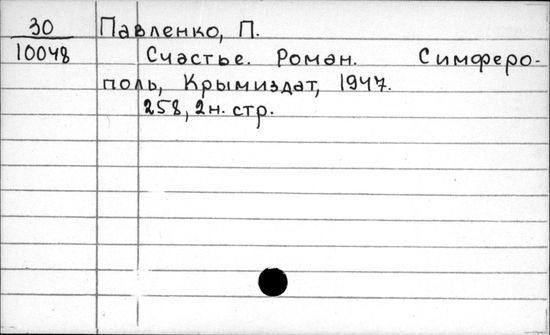 30 Павленко, П.
10048 Счастье. Роман. Симферо-
поль, Крымиздат, 1947.
258, 2н. стр.